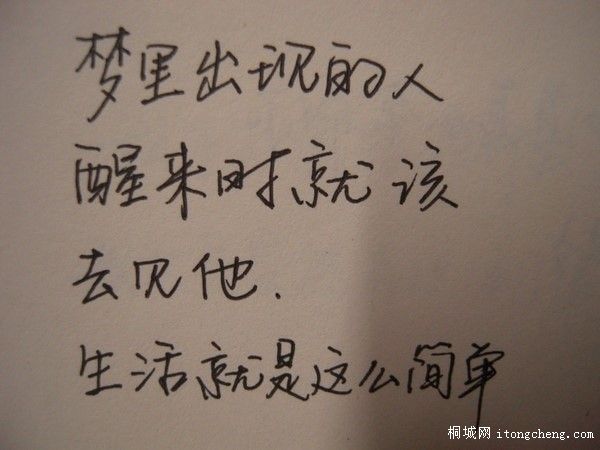 梦里出现的人
醒来时就该
去见他.
生活就是这么简单
桐城网 itongcheng.com